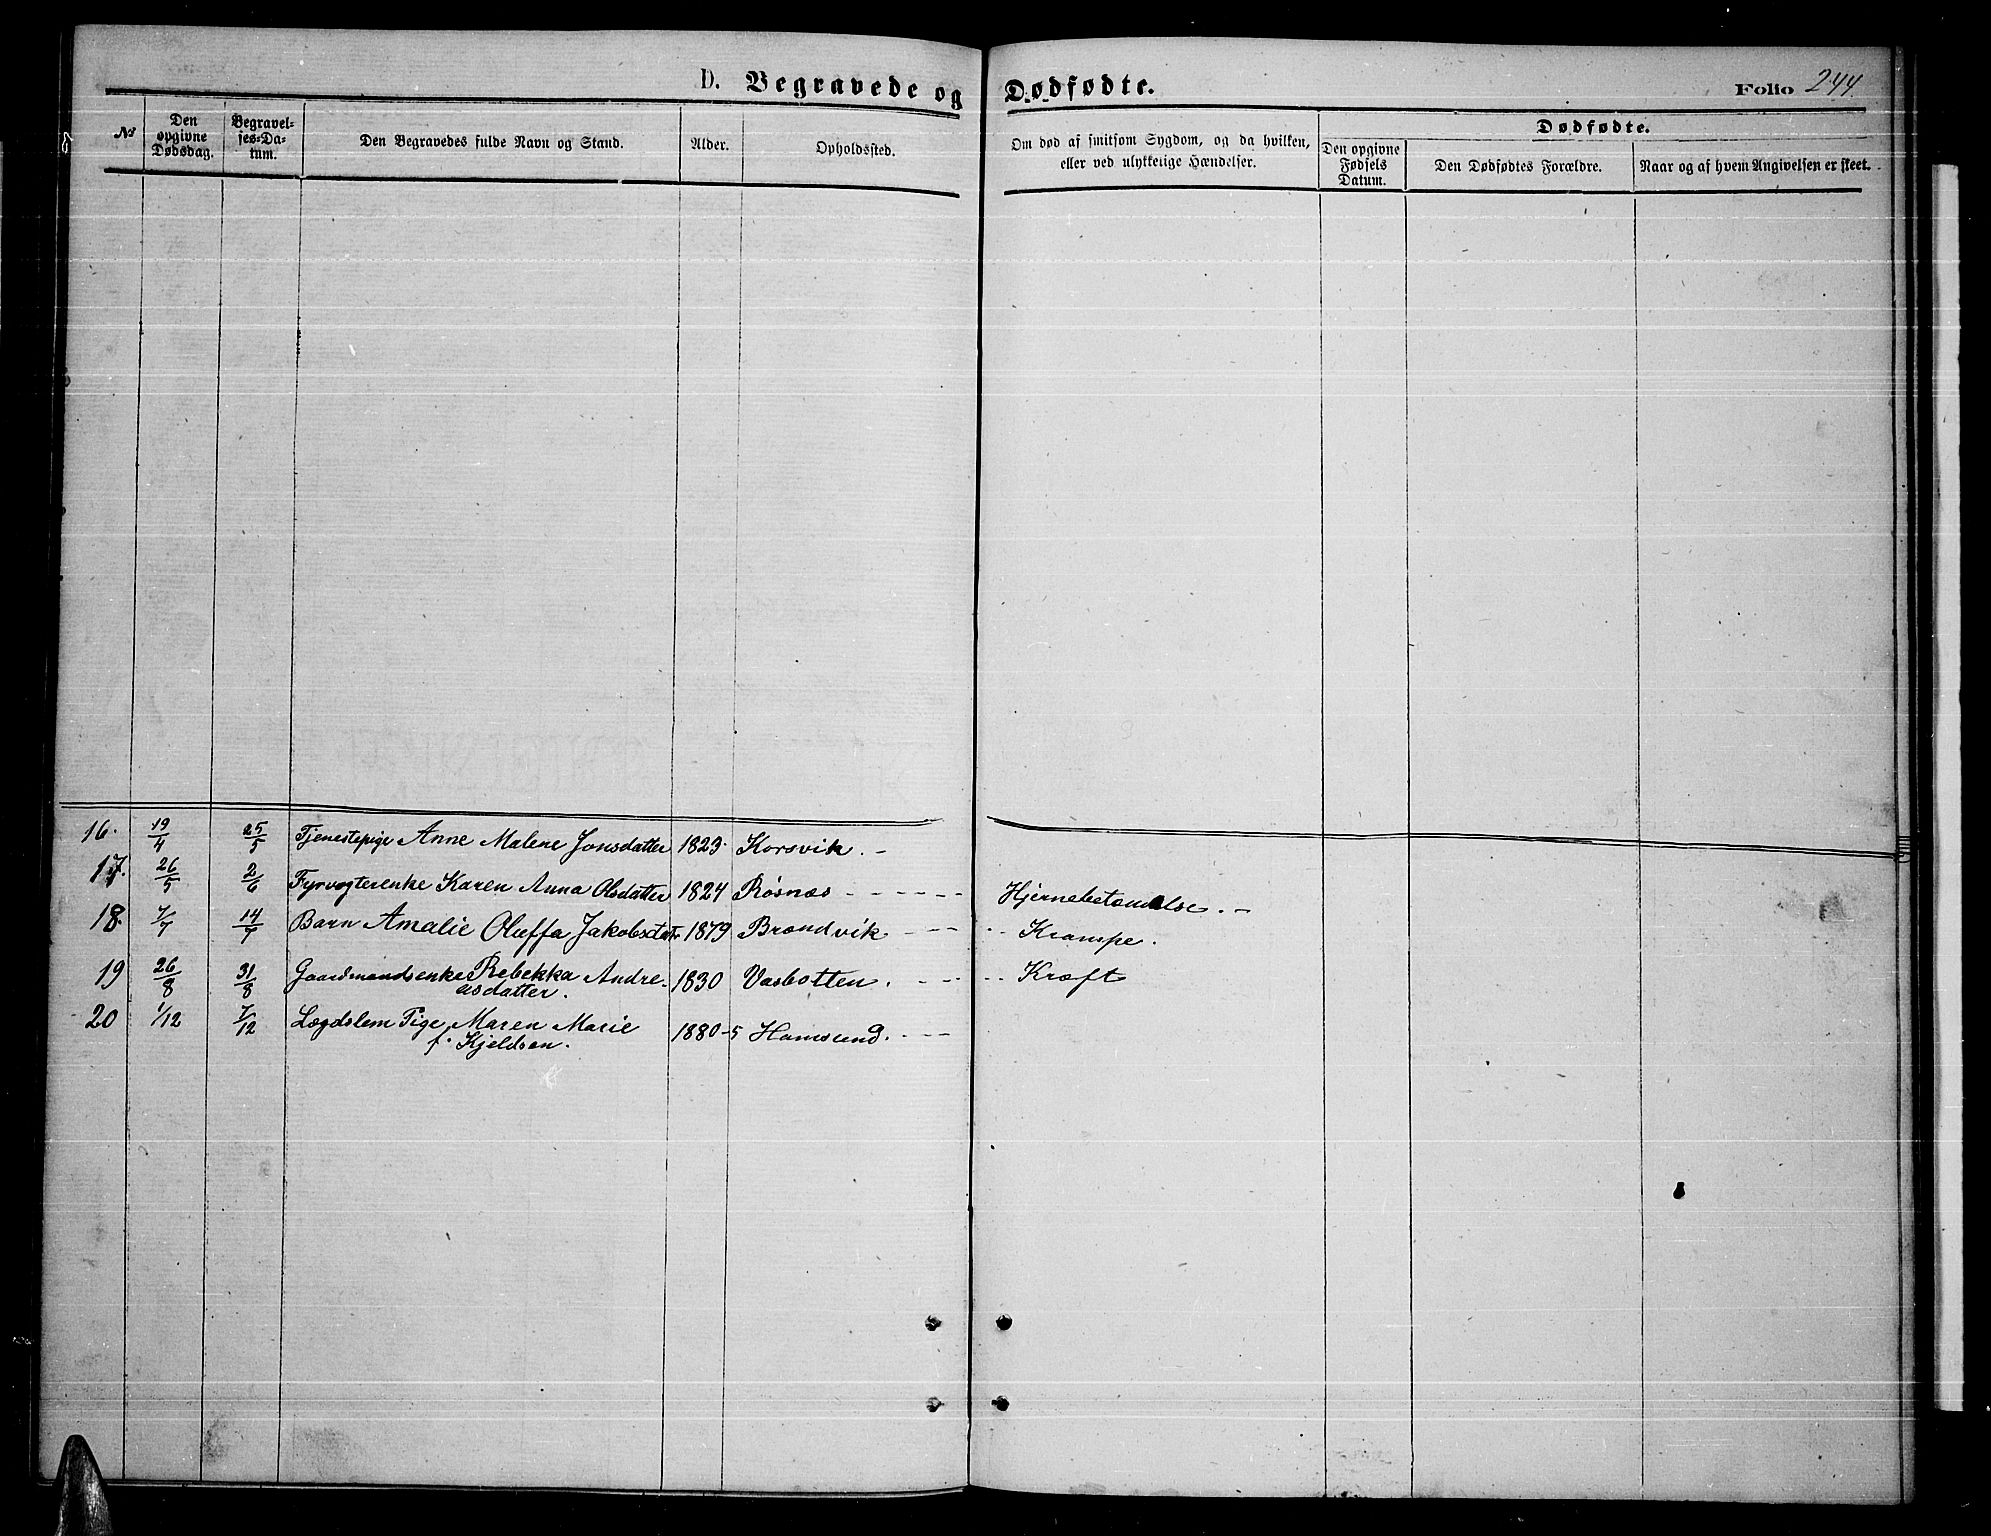 D. Begravede og Dødfødte.
Folio 244.
No
Den opgivne Dødsdag.
Begravelses-Datum.
Den Begravedes fulde Navn og Stand.
Alder.
Opholdssted.
Om død af smitsom Sygdom, og da hvilken, eller ved ulykkelige Hændelser.
Dødfødte.
Den opgivne Fødsels Datum.
Den Dødfødtes Forældre.
Naar og af hvem Angivelsen er skeet.
16. 19/4 25/5 Tjenestepige Anne Malene Jonsdatter 1823. Korsvik. -
17. 26/5 2/6 Fyrvogterenke Karen Anna Olsdatter 1824 Røsnæs - - - - - - Hjernebetændelse. -
18. 7/7 14/7 Barn Amalie Oluffa Jakobsdatr 1879 Brandvik - - - - - Krampe.
19 26/8 31/8 Gaardmandsenke Rebekka Andre-
asdatter. 1830 Vasbotten. - - - - - Kræft
20 1/12 7/12 Lægdslem Pige Maren Marie
f. Kjeldsen. 1880-5 Hamsund. - - -